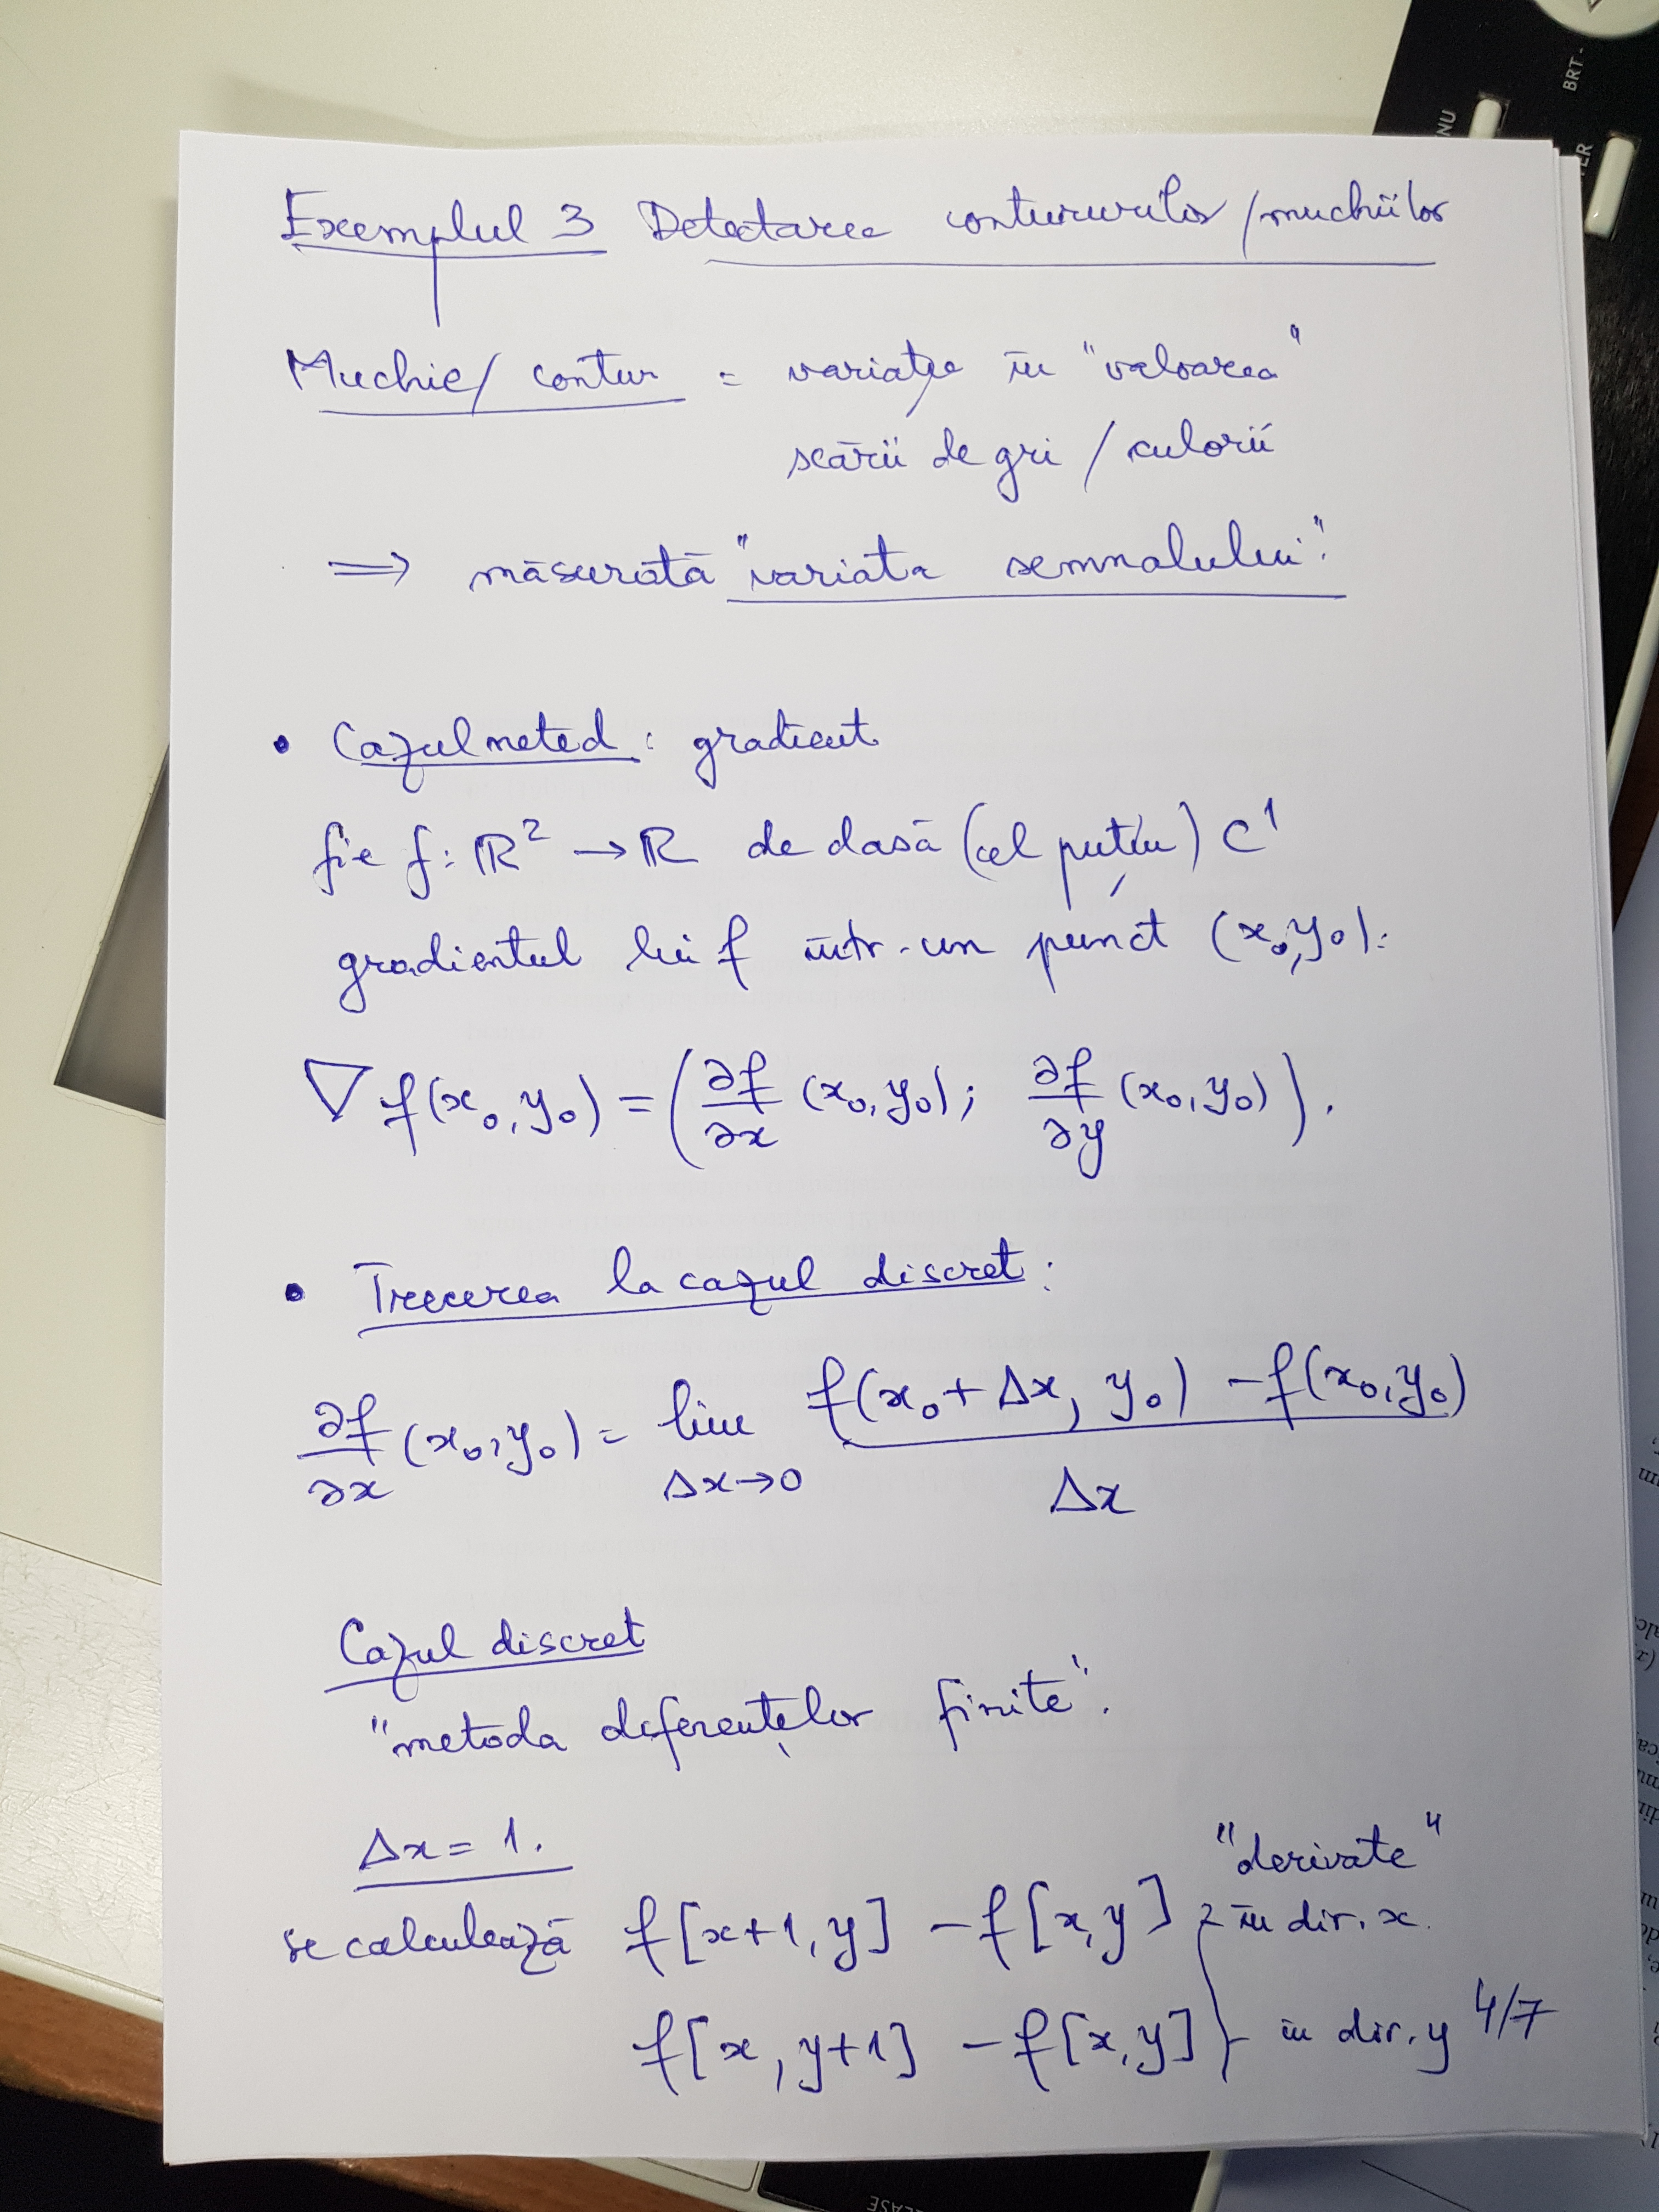 Exemplul 3 Detectarea contururilor/muchiilor
Muchie/contur = variație în "valoarea"
scării de gri / culorii
⟹ măsurată "variata semnalului".
• Cazul neted: gradient
fie f: ℝ² → ℝ de clasă (cel puțin) C¹
gradientul lui f într-un punct (x₀,y₀):
∇f(x₀,y₀) = (∂f/∂x (x₀,y₀); ∂f/∂y (x₀,y₀)).
• Trecerea la cazul discret:
∂f/∂x (x₀,y₀) = lim Δx→0 (f(x₀+Δx, y₀) - f(x₀,y₀))/Δx
Cazul discret
"metoda diferențelor finite".
Δx = 1.
"derivate"
se calculează f[x+1,y] - f[x,y] } în dir. x.
f[x,y+1] - f[x,y] } în dir. y
4/7
BRT -